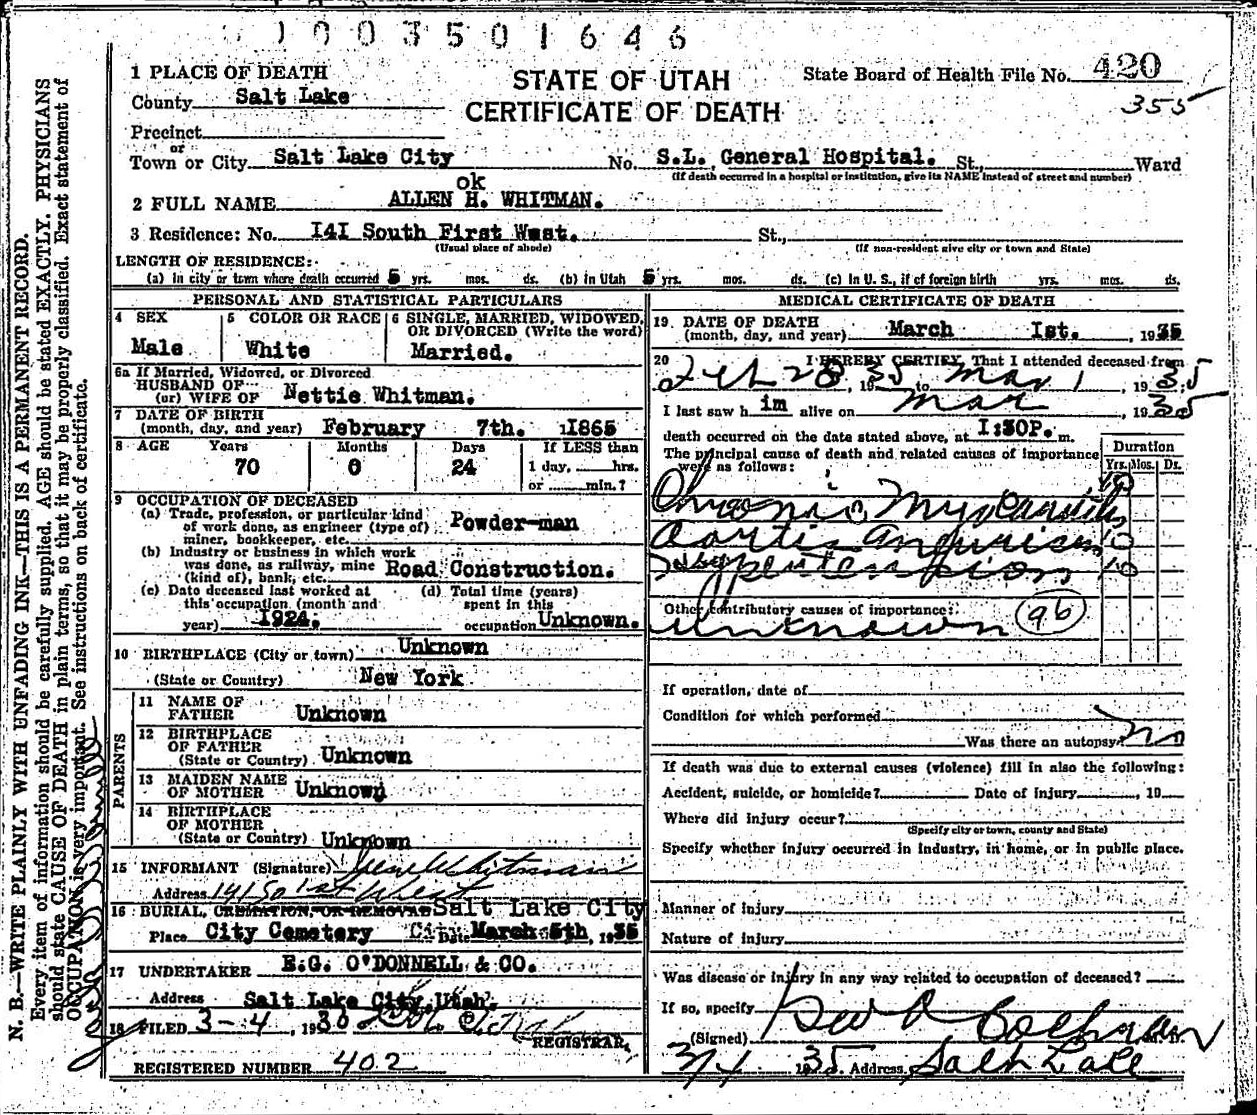 1003501646
1 PLACE OF DEATH
STATE OF UTAH
CERTIFICATE OF DEATH
State Board of Health File No. 420
355
County Salt Lake
Precinct
or
Town or City Salt Lake City No. S.L. General Hospital. St., Ward
(If death occurred in a hospital or institution, give its NAME instead of street and number)
ok
2 FULL NAME ALLEN H. WHITMAN.
3 Residence: No. I4I South First West. St.,
(Usual place of abode) (If non-resident give city or town and State)
LENGTH OF RESIDENCE:
(a) In city or town where death occurred 5 yrs. mos. ds. (b) in Utah 5 yrs. mos. ds. (c) In U. S., if of foreign birth yrs. mos. ds.
PERSONAL AND STATISTICAL PARTICULARS
4 SEX
Male
5 COLOR OR RACE
White
6 SINGLE, MARRIED, WIDOWED,
OR DIVORCED (Write the word)
Married.
6a If Married, Widowed, or Divorced
HUSBAND OF
(or) WIFE OF Nettie Whitman.
7 DATE OF BIRTH
(month, day, and year) February 7th. 1865
8 AGE Years Months Days If LESS than
70 0 24 1 day, hrs.
or min.?
9 OCCUPATION OF DECEASED
(a) Trade, profession, or particular kind
of work done, as engineer (type of)
miner, bookkeeper, etc. Powder-man
(b) Industry or business in which work
was done, as railway, mine
(kind of), bank, etc. Road Construction.
(c) Date deceased last worked at
this occupation (month and
year) 1924.
(d) Total time (years)
spent in this
occupation Unknown.
10 BIRTHPLACE (City or town) Unknown
(State or Country) New York
PARENTS
11 NAME OF
FATHER Unknown
12 BIRTHPLACE
OF FATHER
(State or Country) Unknown
13 MAIDEN NAME
OF MOTHER Unknown
14 BIRTHPLACE
OF MOTHER
(State or Country) Unknown
15 INFORMANT (Signature) Whitman
Address 141 So 1st West
16 BURIAL, CREMATION, OR REMOVAL Salt Lake City
Place City Cemetery City Date March 5th, 1935
17 UNDERTAKER E.G. O'DONNELL & CO.
Address Salt Lake City, Utah.
18 FILED 3-4, 193
REGISTRAR.
REGISTERED NUMBER 402
MEDICAL CERTIFICATE OF DEATH
19. DATE OF DEATH
(month, day, and year) March Ist., 1935
20 I HEREBY CERTIFY, That I attended deceased from
Feb 28, 1935 to Mar 1, 1935
I last saw him alive on Mar, 1935
death occurred on the date stated above, at I:30P. m.
The principal cause of death and related causes of importance
were as follows:
Duration
Yrs. Mos. Ds.
Chronic Myocarditis 10
Aortic 10
Hypertension 10
Other contributory causes of importance:
Unknown 96
If operation, date of
Condition for which performed
Was there an autopsy? no
If death was due to external causes (violence) fill in also the following:
Accident, suicide, or homicide? Date of injury, 19
Where did injury occur?
(Specify city or town, county and State)
Specify whether injury occurred in industry, in home, or in public place.
Manner of injury
Nature of injury
Was disease or injury in any way related to occupation of deceased?
If so, specify
(Signed) M. D.
3/4 1935 Address Salt Lake
N. B.—WRITE PLAINLY WITH UNFADING INK—THIS IS A PERMANENT RECORD.
Every item of information should be carefully supplied. AGE should be stated EXACTLY. PHYSICIANS
should state CAUSE OF DEATH in plain terms, so that it may be properly classified. Exact statement of
OCCUPATION is very important. See instructions on back of certificate.